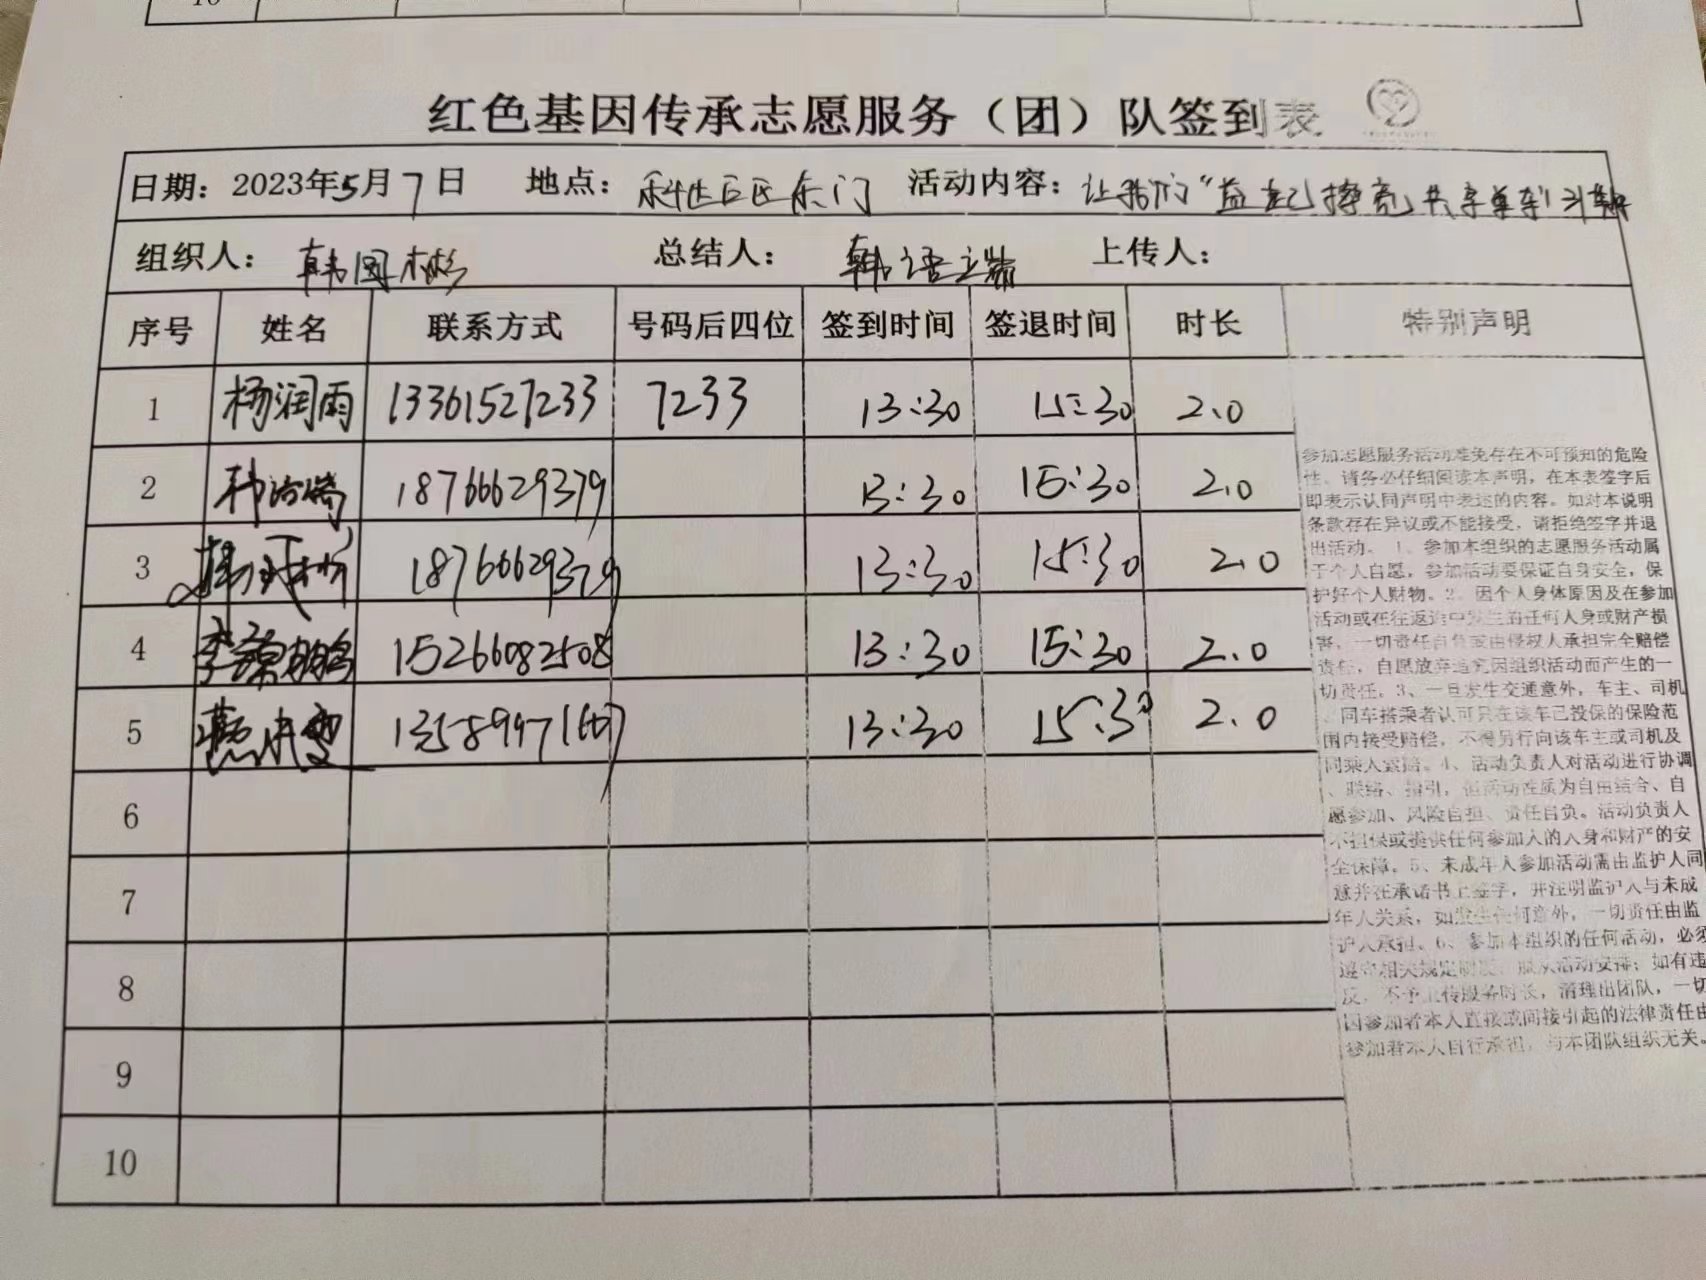 10
红色基因传承志愿服务（团）队签到表
日期：2023年5月7日 地点：东门 活动内容：让我们“益起擦亮共享单车”
组织人：韩国彬 总结人：韩语 上传人：
序号 姓名 联系方式 号码后四位 签到时间 签退时间 时长 特别声明
1 杨润雨 13361527233 7233 13:30 15:30 2.0
2 18766629379 13:30 15:30 2.0
3 18766629379 13:30 15:30 2.0
4 李 15266082508 13:30 15:30 2.0
5 13:30 15:30 2.0
6
7
8
9
10
参加志愿服务活动难免存在不可预知的危险
性，请务必仔细阅读本声明，在本表签字后
即表示认同声明中表述的内容。如对本说明
条款存在异议或不能接受，请拒绝签字并退
出活动。1、参加本组织的志愿服务活动属
于个人自愿，参加活动要保证自身安全，保
护好个人财物。2、因个人身体原因及在参加
活动或在往返途中发生的任何人身或财产损
害，一切责任自负或由侵权人承担完全赔偿
责任，自愿放弃追究因组织活动而产生的一
切责任。3、一旦发生交通意外，车主、司机
、同车搭乘者认可只在该车已投保的保险范
围内接受赔偿，不得另行向该车主或司机及
同乘人索赔。4、活动负责人对活动进行协调
、联络、指引，但活动性质为自由结合、自
愿参加、风险自担、责任自负。活动负责人
不担保或提供任何参加人的人身和财产的安
全保障。5、未成年人参加活动需由监护人同
意并在承诺书上签字，并注明监护人与未成
年人关系，如发生任何意外，一切责任由监
护人承担。6、参加本组织的任何活动，必须
遵守相关规定制度，服从活动安排；如有违
反，不予上传服务时长，清理出团队，一切
因参加者本人直接或间接引起的法律责任由
参加者本人自行承担，与本团队组织无关。